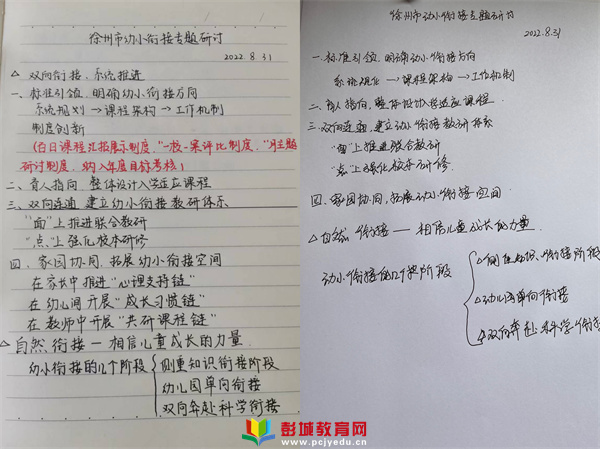 徐州市幼小衔接专题研讨
2022.8.31
△ 双向衔接、系统推进
一、标准引领、明确幼小衔接方向
系统规划→课程架构→工作机制
制度创新
(百日课程汇报展示制度、“一校一案评比制度、“月主题
研讨制度、纳入年度目标考核)
二、育人指向 整体设计入学适应课程
三、双向连通 建立幼小衔接教研体系
“面”上推进联合教研
“点”上强化校本研修
四、家园协同、拓展幼小衔接空间
在家长中推进“心理支持链”
在幼儿间开展“成长习惯链”
在教师中开展“共研课程链”
△自然衔接—相信儿童成长的力量
幼小衔接的几个阶段
侧重知识衔接阶段
幼儿园单向衔接
双向奔赴科学衔接
徐州市幼小衔接专题研讨
2022.8.31
一、标准引领、明确幼小衔接方向
系统规化→课程架构→工作机制
二、育人指向、整体设计入学适应课程
三、双向连通、建立幼小衔接教研体系
“面”上推进联合教研
“点”上强化校本研修
四、家园协同、拓展幼小衔接空间
△自然衔接——相信儿童成长的力量
幼小衔接的几个阶段
△侧重知识衔接阶段
△幼儿园单向衔接
△双向奔赴科学衔接
彭城教育网
www.pcjyedu.cn